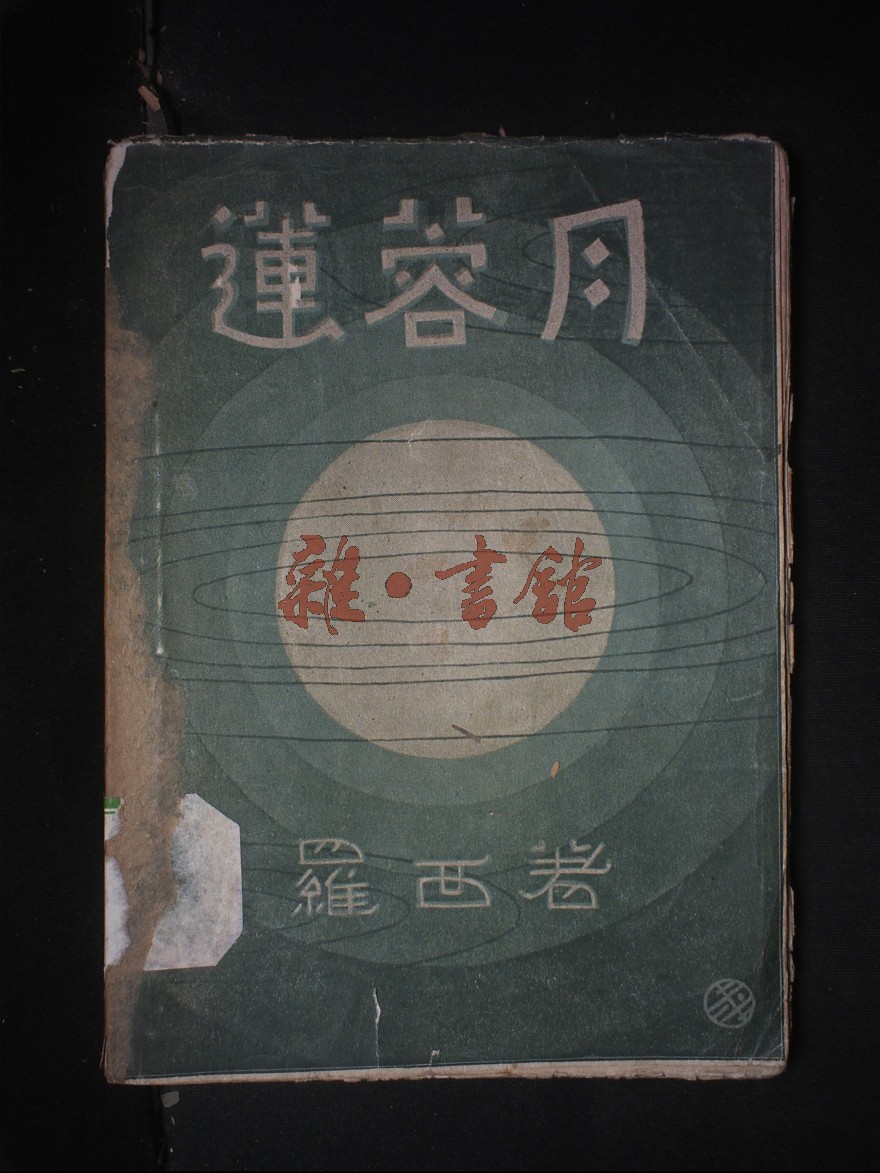 蓮蓉月
雜·書館
羅西著